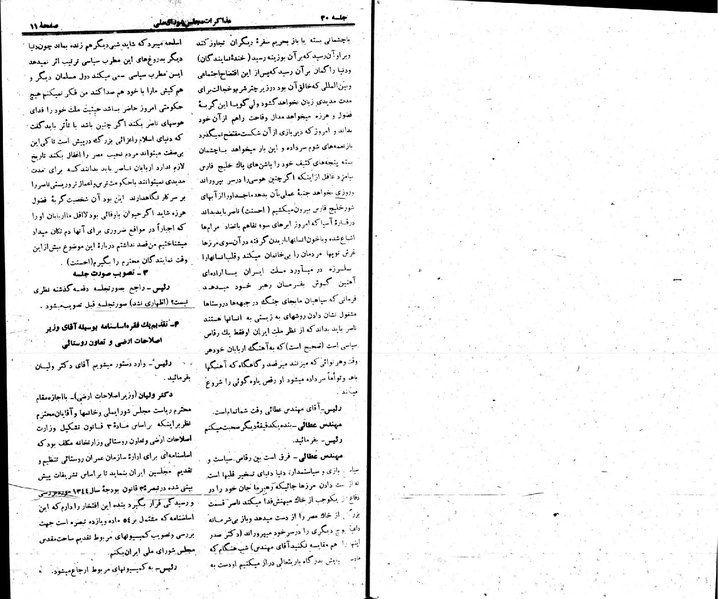 جلسه ۲۰
مذاکرات مجلس شورای ملی
صفحهٔ ۱۱
باچشمانی بسته یا باز بحریم سفرهٔ دیگران تجاوز کند
و بر او آن رسید که بر آن بوزینه رسید (خندهٔ نمایندگان)
و دنیا را گمان بر آن رسید که پس از این افتضاح اجتماعی
و بین‌المللی که خالق آن بود دو زیر چتر شرم و خجالت برای
مدت مدیدی زبان نخواهد گشود ولی گویا این گربهٔ
فضول و هرزه میخواهد مدال وقاحت راهم از آن خود
بداند و امروز که دیر بازی از آن شکست مفتضح نمیگذرد
باز نغمه‌های شوم سر داده و این بار میخواهد باچشمان
بسته پنجه‌های کثیف خود را باش‌های پاک خلیج فارس
بیامزد غافل از اینکه اگر چنین هوسی را در سر بپروراند
و روزی بخواهد جنبهٔ عملی بآن بدهد ماجسد او را از آبهای
شور خلیج فارس بیرون میکشیم (احسنت) ناصر باید بداند
در قارهٔ آسیا که امروز ابرهای سوء تفاهم باتضاد مرامها
غرش توپها مردمان را بی‌خانمان میکند و قلب انسانها را
میآورد ملت ایران با اراده‌ای
آهنین گوش بفرمان رهبر خود میدهد
فرمانی که سپاهیان ما بجای جنگ در جبهه‌ها در روستاها
مشغول نشان دادن روشهای به زیستی به انسانها هستند
ناصر باید بداند که از نظر ملت ایران او فقط یک رقاص
سیاسی است (صحیح است) که به آهنگ اربابان خود هر
وقت هر نوائی که میزنند میرقصد و گاهگاه که آهنگها
باهم توأما سر داده میشود او رقص یاوه گوئی را شروع
میکند.
رئیس ـ آقای مهندس عطائی وقت شما تمام است.
مهندس عطائی ـ بنده یکدقیقهٔ دیگر صحبت میکنم
رئیس ـ بفرمائید.
مهندس عطائی ـ فرق است بین رقاص سیاست و
بازی و سیاستمدار، دنیا دنیای تسخیر قلبها است
دادن مرزها جائیکه رهبر ما جان خود را در
یکوجب از خاک میهنش فدا میکند ناصر قسمت
از خاک مصر را از دست میدهد و باز بی‌شرمانه
دیگری را در سر خود میپروراند (دکتر صدر
را هم مقایسه نکنید آقای مهندس) شب هنگام که
بدرگاه باریتعالی دراز میکنیم او دست به
اسلحه میبرد که شاید شبی دیگر هم زنده بماند چون دنیا
دیگر بدروغ‌های این مطرب سیاسی ترتیب اثر نمیدهد
این مطرب سیاسی سعی میکند دول مسلمان دیگر و
هم کیش ما را با خود هم صدا کند من فکر نمیکنم هیچ
حکومتی امروز حاضر باشد حیثیت ملت خود را فدای
هوسهای ناصر بکند اگر چنین باشد با تأثر باید گفت
که دنیای اسلام را عزائی بزرگ در پیش است تا کی این
بی‌صفت میتواند مردم نجیب مصر را اغفال بکند تاریخ
لازم ندارد اربابان ناصر باید بدانند که برای مدت
مدیدی نمیتوانند با حکومت ترس و اعمال تروریستی ناصر را
بر سر کار نگاهدارند. این بود آن شخصیت گربهٔ فضول
هرزه شاید اگر حیوان باوفائی بود لااقل ما اربابان او را
که اجباراً در مواقع ضروری برای آنها دم تکان میداد
میشناختیم من قصد نداشتم دربارهٔ این موضوع بیش از این
وقت نمایندگان محترم را بگیرم (احسنت).
۳ ـ تصویب صورت جلسه
رئیس ـ راجع بصورتجلسه دفعهٔ گذشته نظری
نیست؟ (اظهاری نشد) صورتجلسه قبل تصویب میشود.
۴ ـ تقدیم یک فقره اساسنامه بوسیله آقای وزیر
اصلاحات ارضی و تعاون روستائی
رئیس ـ وارد دستور میشویم آقای دکتر ولیان
بفرمائید.
دکتر ولیان (وزیر اصلاحات ارضی) ـ با اجازه مقام
محترم ریاست مجلس شورایملی و خانمها و آقایان محترم
نظر باینکه بر اساس مادهٔ ۳ قانون تشکیل وزارت
اصلاحات ارضی و تعاون روستائی وزارتخانه مکلف بود که
اساسنامه‌ای برای ادارهٔ سازمان عمران روستائی تنظیم و
تقدیم مجلسین ایران بنماید تا بر اساس تشریفات پیش
بینی شده در تبصره ۳۵ قانون بودجهٔ سال ۱۳۴۴ مورد بررسی
و رسیدگی قرار بگیرد بنده این افتخار را دارم که این
اساسنامه که مشتمل بر ۵۴ ماده و یازده تبصره است جهت
بررسی و تصویب کمیسیونهای مربوط تقدیم ساحت مقدس
مجلس شورای ملی ایران بکنم.
رئیس ـ به کمیسیونهای مربوط ارجاع میشود.